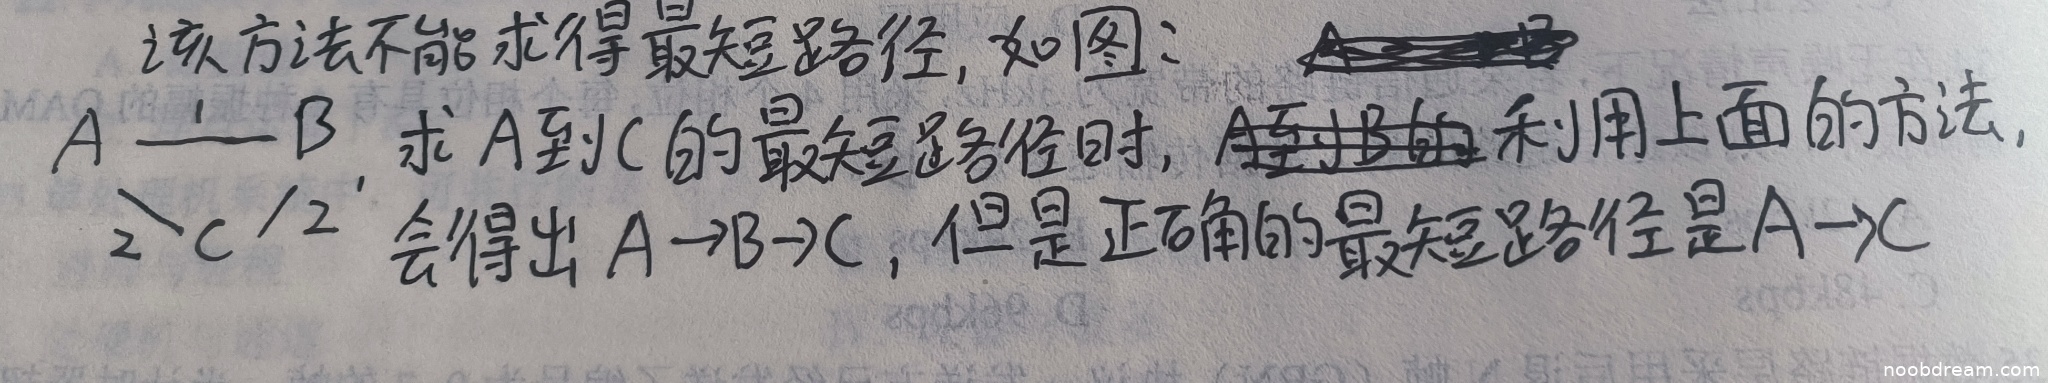 该方法不能求得最短路径, 如图:
A 1 B, 求A到C的最短路径时, 利用上面的方法,
2 C 2 会得出A→B→C, 但是正确的最短路径是A→C
C.48kbps D.96kbps
noobdream.com